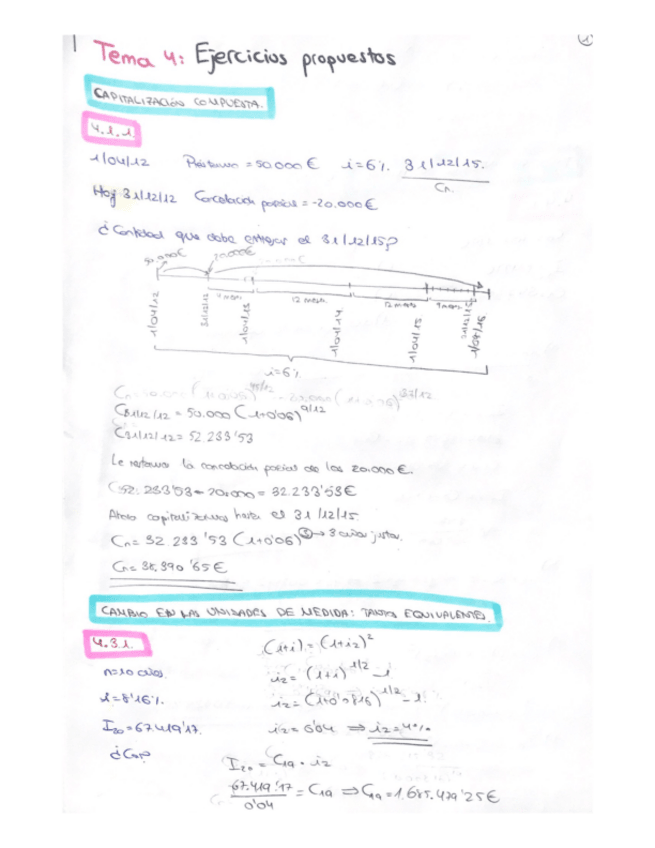 1
Tema 4: Ejercicios propuestos
CAPITALIZACIÓN COMPUESTA.
4.1.1.
1/04/12 Préstamo = 50.000 € i=6%. 31/12/15.
Cn.
Hoy 31/12/12 Cancelación parcial = -20.000 €
¿Cantidad que debe entregar el 31/12/15?
50.000€ 20.000€
1/04/12 31/12/12 1/04/13 12 meses 1/04/14 12 meses 1/04/15 9 meses
i=6%
C31/12/12 = 50.000 (1+0'06)^9/12
C31/12/12 = 52.233'53
Le restamos la cancelación parcial de los 20.000 €.
52.233'53 - 20.000 = 32.233'53 €
Ahora capitalizamos hasta el 31/12/15.
Cn = 32.233'53 (1+0'06)^3 → 3 años justos.
Cn = 38.390'65 €
CAMBIO EN LAS UNIDADES DE MEDIDA: TANTOS EQUIVALENTES.
4.3.1. (1+i) = (1+i2)^2
n=10 años i2 = (1+i)^1/2 - 1
i=8'16%. i2 = (1+0'0816)^1/2 - 1.
I20 = 67.419'17. i2 = 0'04 ⇒ i2 = 4%
I20 = C19 · i2
67.419'17 / 0'04 = C19 ⇒ C19 = 1.685.479'25 €